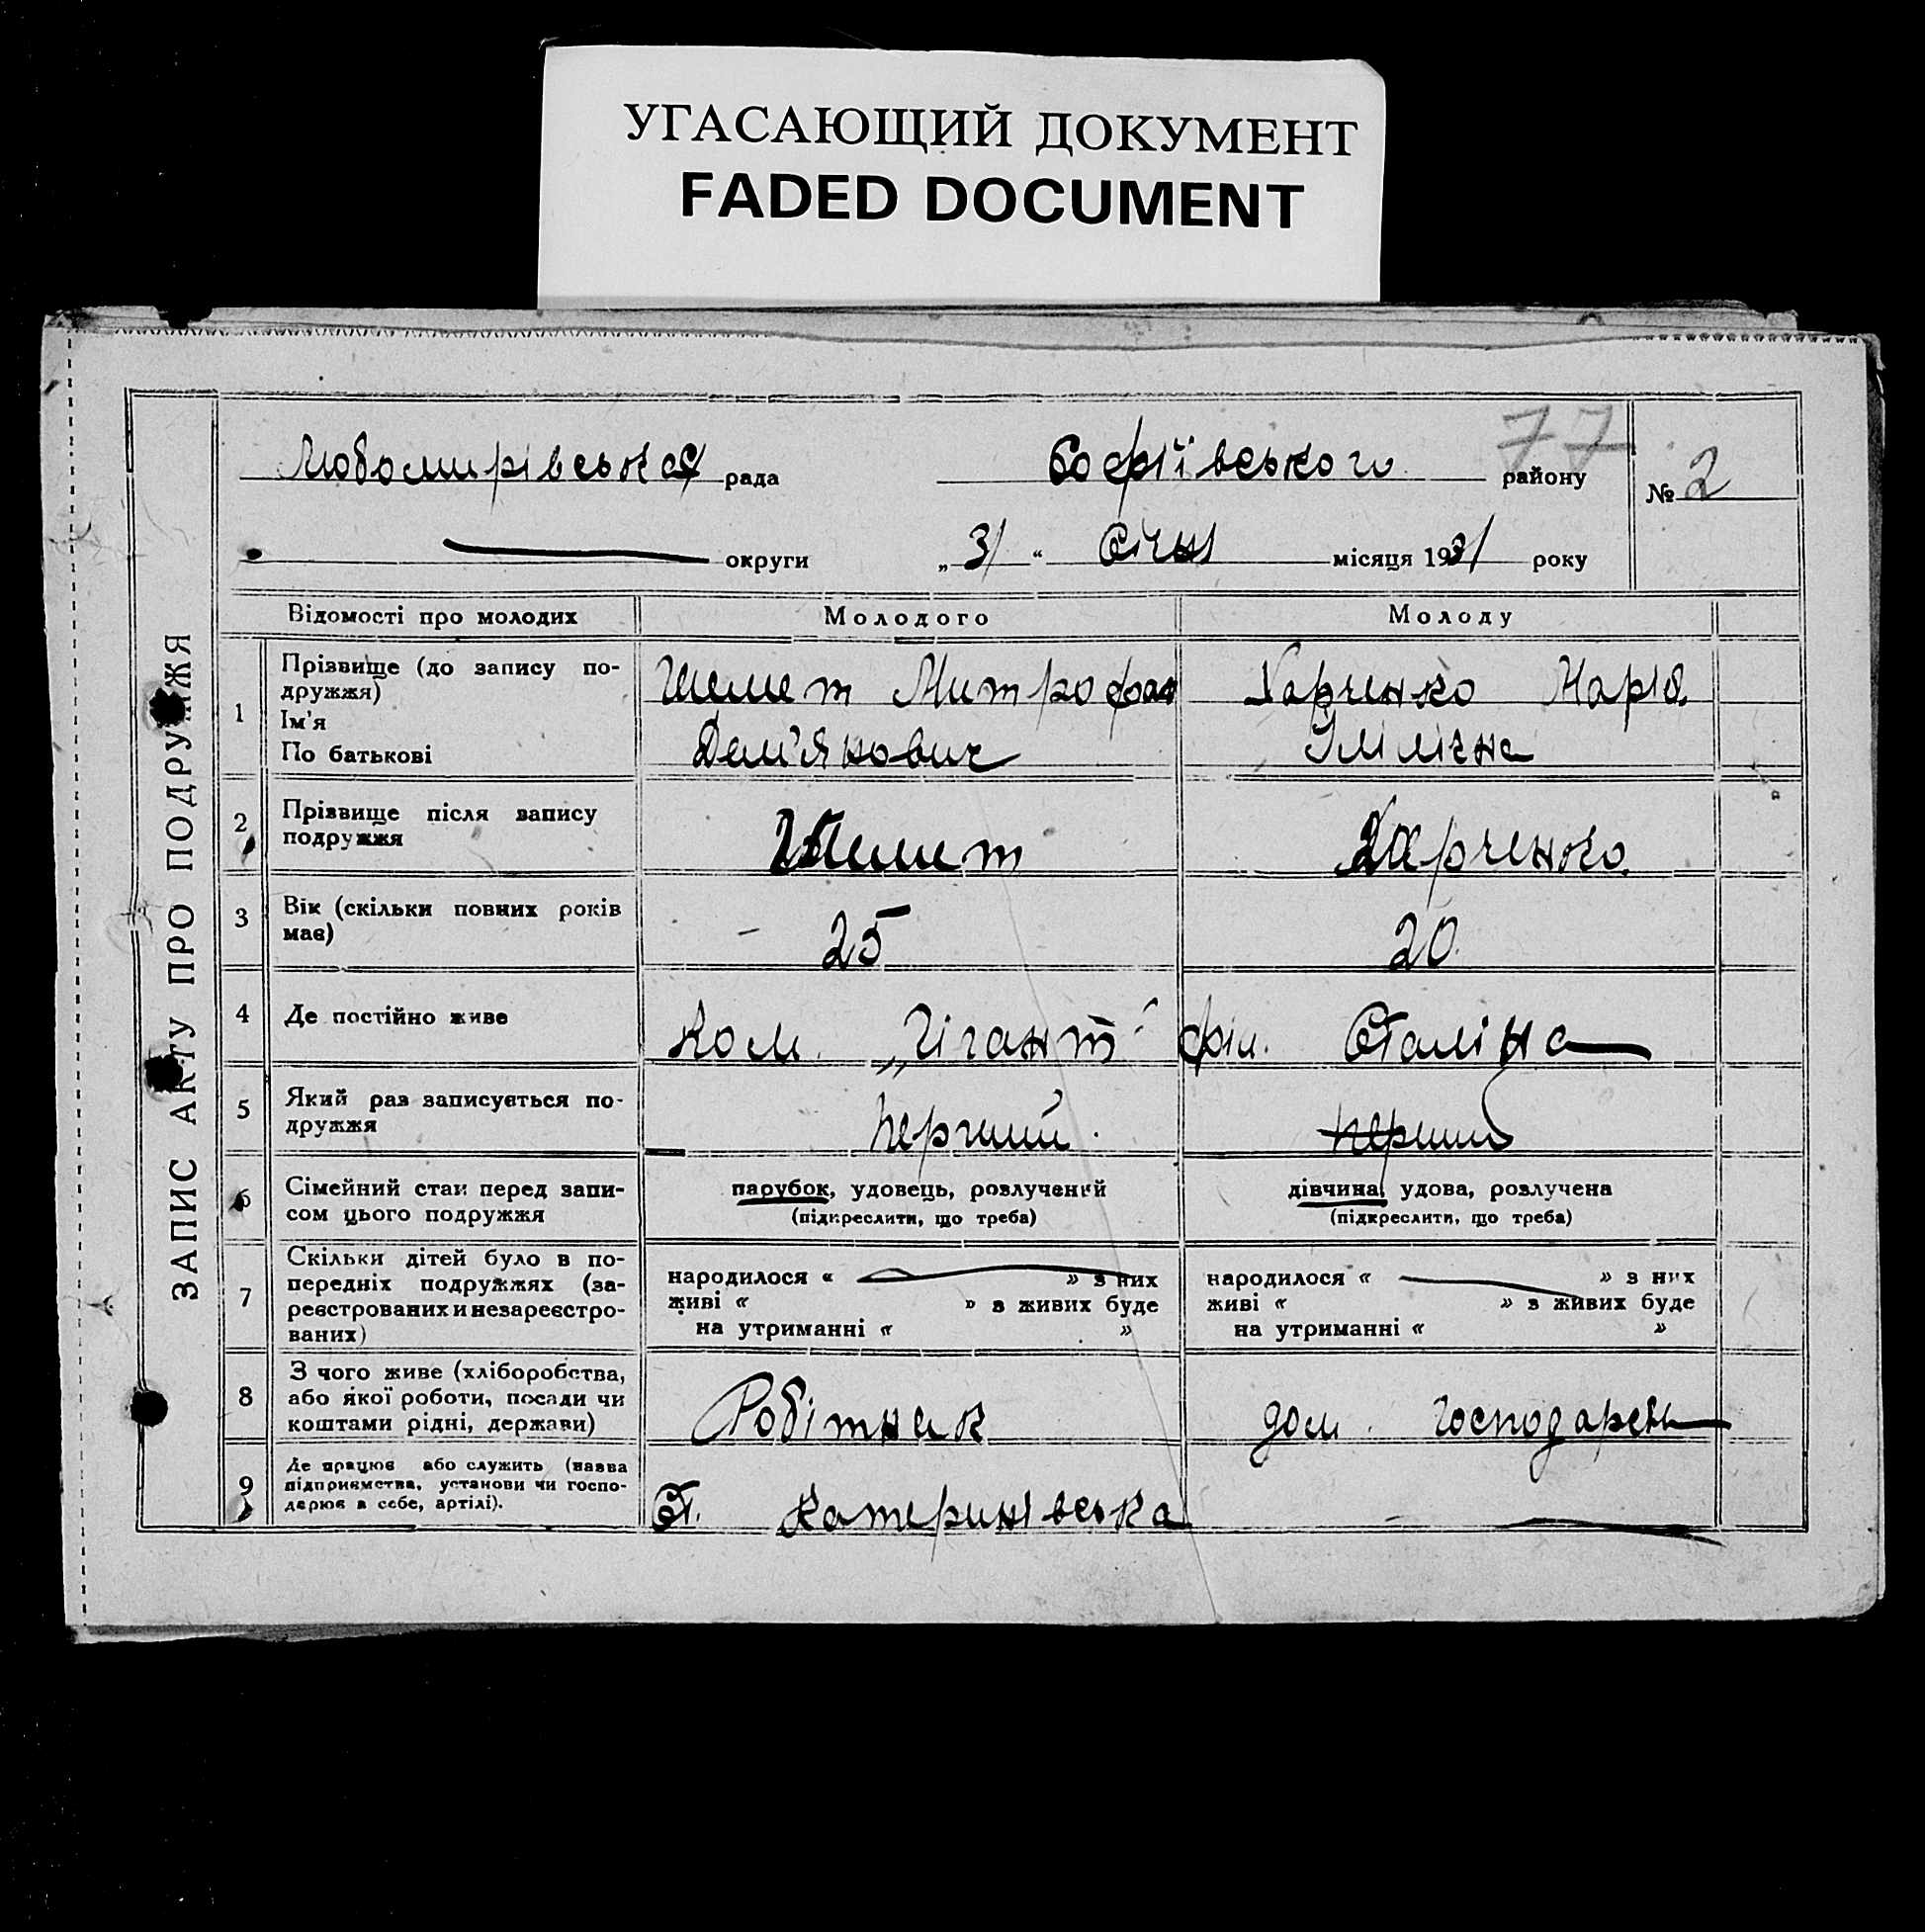 УГАСАЮЩИЙ ДОКУМЕНТ
FADED DOCUMENT
77
Любомирівська рада Софіївського району № 2
округи „3/“ Січня місяця 1931 року
ЗАПИС АКТУ ПРО ПОДРУЖЖЯ
Відомості про молодих Молодого Молоду
1 Прізвище (до запису по-
дружжя)
Ім'я
По батькові
Шемет Митрофан
Дем'янович
Харченко Марія
2 Прізвище після запису
подружжя
Шемет
Харченко
3 Вік (скільки повних років
має)
25
20
4 Де постійно живе
Ком. „Гігант“ філ. Сталіна
5 Який раз записується по-
дружжя
перший
перший
6 Сімейний стан перед запи-
сом цього подружжя
парубок, удовець, розлучений
(підкреслити, що треба)
дівчина, удова, розлучена
(підкреслити, що треба)
7 Скільки дітей було в по-
передніх подружжях (за-
реєстрованих и незареєстро-
ваних)
народилося « » з них
живі « » з живих буде
на утриманні « »
народилося « » з них
живі « » з живих буде
на утриманні « »
8 З чого живе (хліборобства,
або якої роботи, посади чи
коштами рідні, держави)
Робітник
дом. господарень
9 Де працює або служить (назва
підприємства, установи чи госпо-
дарює в себе, артілі).
Ст. Катеринівська